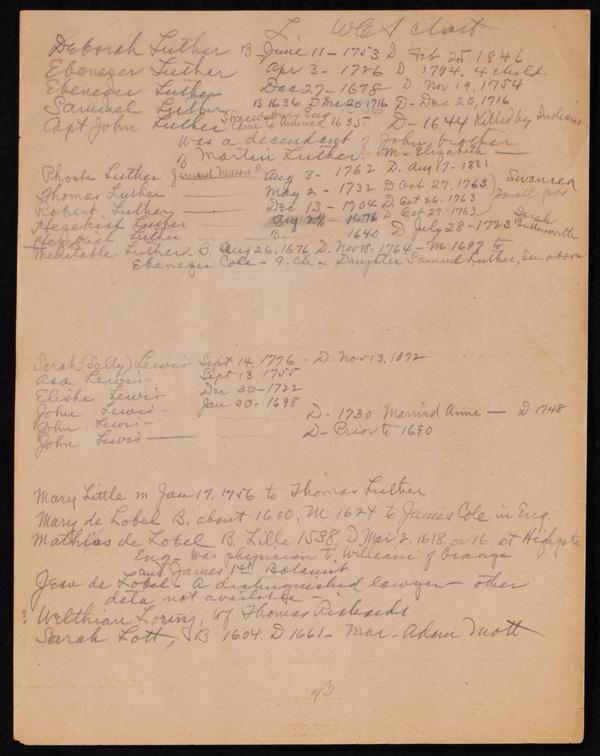 L. W C S chart
Deborah Luther B June 11 - 1753 D Feb 25 1846
Ebenezer Luther Apr 3 - 1726 D 1794. 4 child
Ebenezer Luther Dec 27 - 1678 D Nov 19, 1754
Samuel Luther B 1636 D Dec 20 1716 D - Dec 20, 1716
Capt John Luther Shrewsbury Eng came to 1635 D - 1644 Killed by Indians
was a descendant of John brother
B Martin Luther. M - Elizabeth —
Phoebe Luther Aug 3 - 1762 D. Aug 17 - 1831
Thomas Luther — May 2 - 1732 D Oct 27, 1763 Swansea
Robert Luther — Dec 13 - 1704 D Oct 26, 1763 Small pox
Hezekiah Luther — Aug 27 1676 D Oct 27 - 1763
Hezekiah Luther B - 1640 D July 28 - 1723 Sarah Butterworth
Mehitable Luther - B. Aug 26, 1676 D. Nov 18, 1764 - M. 1697 to
Ebenezer Cole - 9. ch - Daughter Samuel Luther, See above
Sarah (Sally) Lewis Sept 14, 1776 - D Nov 13, 1872
Asa Lewis - Sept 13 1755
Elisha Lewis Dec 30 - 1722
John Lewis - Jan 30 - 1698
John Lewis - D - 1730 Married Anne — D 1748
John Lewis — D - Prior to 1690
Mary Little m Jan 17, 1756 to Thomas Luther
Mary de Lobel B. about 1600, M 1624 to James Cole in Eng.
Mathias de Lobel B. Lille 1538, D. Mar 2, 1618, or 16 at Highgate
Eng - was physician to William of Orange
and James 1st Botanist
Jean de Lobel - A distinguished lawyer - other
data not available -
Welthian Loring, wf Thomas Richards
Sarah Lott, B 1604. D 1661 - Mar - Adam Mott
23